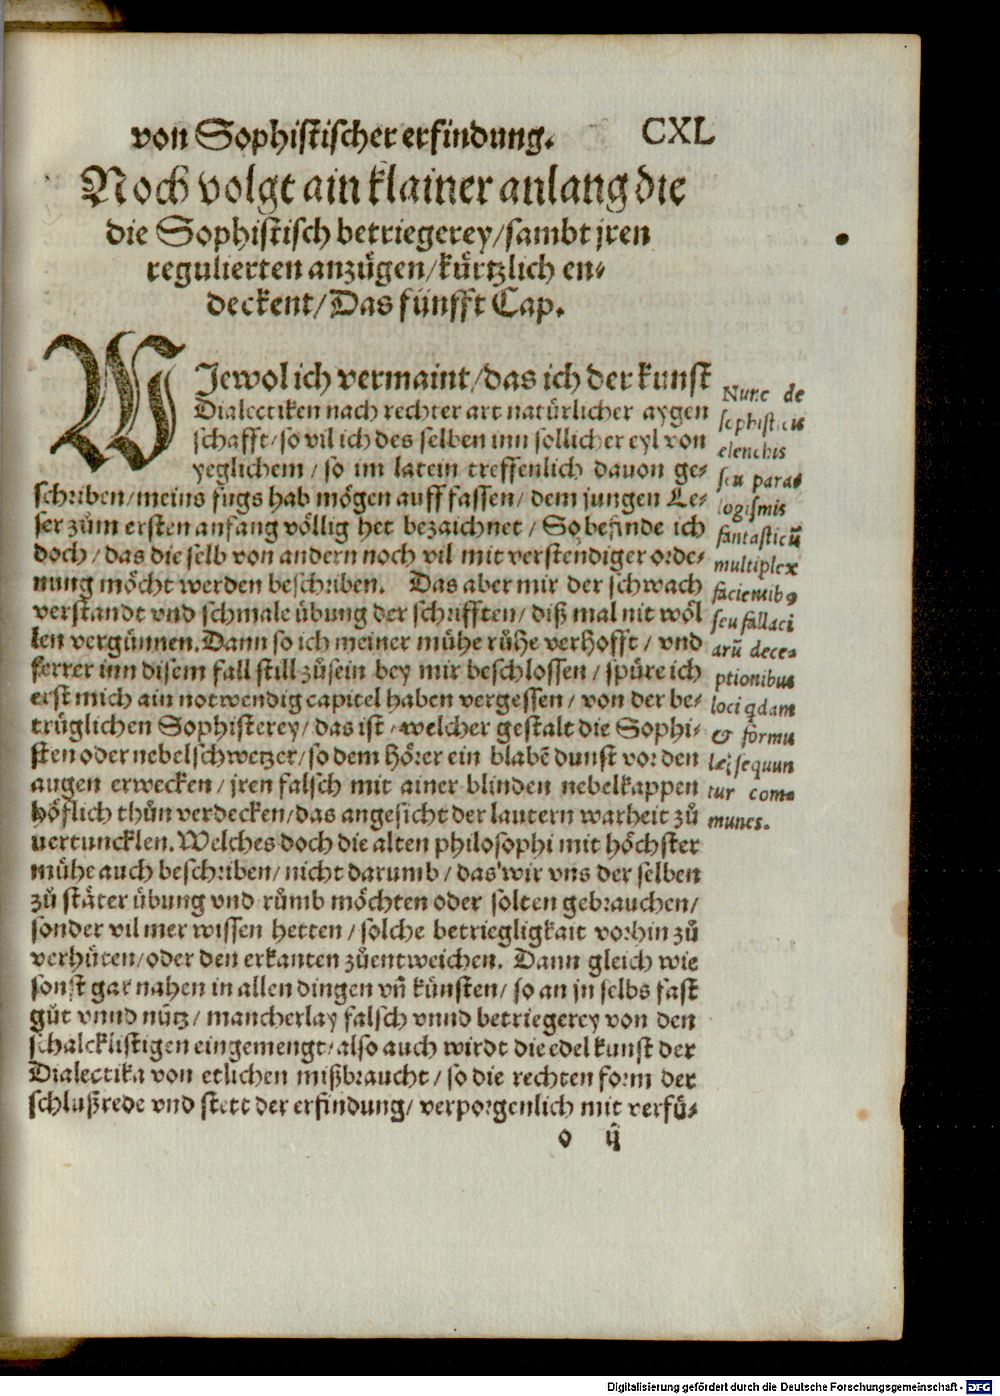 von Sophistischer erfindung. CXL
Noch volgt ain klainer anlang die
die Sophistisch betriegerey/sambt jren
regulierten anzügen/kürtzlich en⸗
deckent/Das fünfft Cap.
WJewol ich vermaint/das ich der kunst
Dialectiken nach rechter art natürlicher aygen
schafft/so vil ich des selben inn sollicher eyl von
yeglichem/so im latein treffenlich dauon ge⸗
schriben/meins fůgs hab mögen auff fassen/dem jungen Le⸗
ser zům ersten anfang völlig het bezaichnet/So befinde ich
doch/das die selb von andern noch vil mit verstendiger orde⸗
nung möcht werden beschriben. Das aber mir der schwach
verstandt vnd schmale übung der schrifften/diß mal nit wöl
len vergünnen. Dann so ich meiner mühe růhe verhofft/vnd
ferrer inn disem fall still zůsein bey mir beschlossen/spüre ich
erst mich ain notwendig capitel haben vergessen/von der be⸗
trüglichen Sophisterey/das ist/welcher gestalt die Sophi⸗
sten oder nebelschwetzer/so dem hörer ein blabē dunst vor den
augen erwecken/jren falsch mit ainer blinden nebelkappen
höflich thůn verdecken/das angesicht der lautern warheit zů
uertuncklen. Welches doch die alten philosophi mit höchster
mühe auch beschriben/nicht darumb/das wir vns der selben
zů stäter übung vnd růmb möchten oder solten gebrauchen/
sonder vil mer wissen hetten/solche betriegligkait vorhin zů
verhüten/oder den erkanten zůentweichen. Dann gleich wie
sonst gar nahen in allen dingen vñ künsten/so an jn selbs fast
gůt vnnd nütz/mancherlay falsch vnnd betriegerey von den
schalcklistigen eingemengt/also auch wirdt die edel kunst der
Dialectika von etlichen mißbraucht/so die rechten form der
schlußrede vnd stett der erfindung/verporgenlich mit verfü⸗
o ij
Nunc de
sophisticis
elenchis
seu para⸗
logismis
fantasticũ
multiplex
facientibꝰ
seu fallaci
arũ dece⸗
ptionibus
loci qdam
& formu
lę; sequun
tur com⸗
munes.
Digitalisierung gefördert durch die Deutsche Forschungsgemeinschaft - DFG